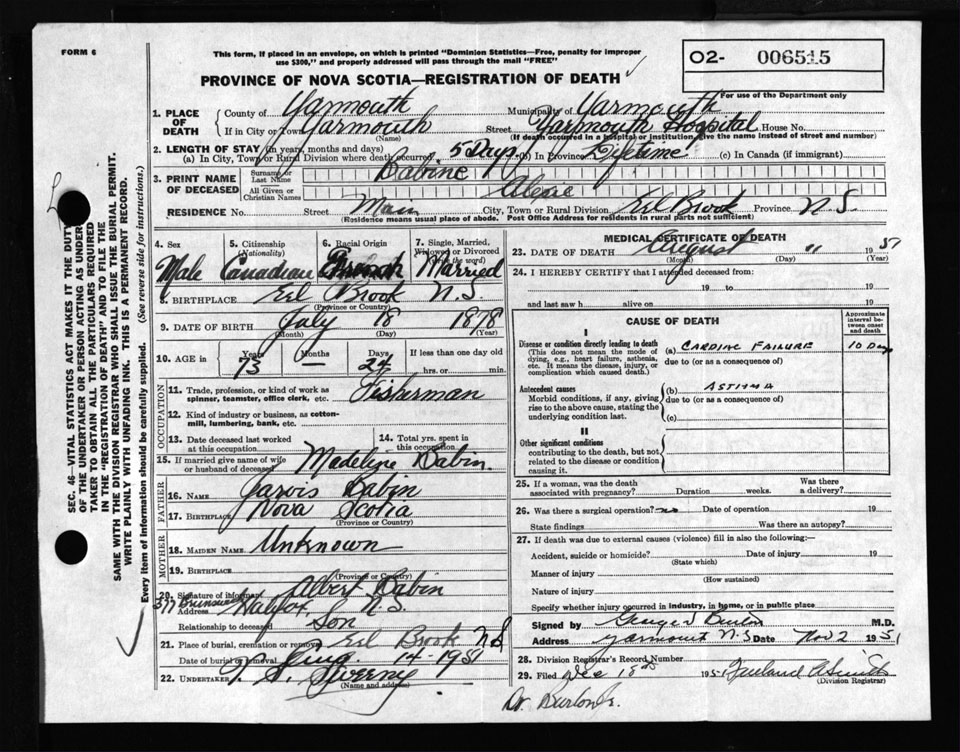 FORM 6
This form, if placed in an envelope, on which is printed "Dominion Statistics—Free, penalty for improper
use $300," and properly addressed will pass through the mail "FREE"
O2- 006515
PROVINCE OF NOVA SCOTIA—REGISTRATION OF DEATH
For use of the Department only
1. PLACE OF DEATH
County of Yarmouth Municipality of Yarmouth
If in City or Town Yarmouth Street Yarmouth Hospital House No.
(Name) (If death occurred in a hospital or institution, give the name instead of street and number)
2. LENGTH OF STAY (in years, months and days)
(a) In City, Town or Rural Division where death occurred 5 Days (b) In Province Lifetime (c) In Canada (if immigrant)
3. PRINT NAME OF DECEASED
Surname or Last Name Babine
All Given or Christian Names
RESIDENCE No. Street Main City, Town or Rural Division Eel Brook Province N.S.
(Residence means usual place of abode. Post Office Address for residents in rural parts not sufficient)
4. Sex Male
5. Citizenship (Nationality) Canadian
6. Racial Origin French
7. Single, Married, Widowed or Divorced (Write the word) Married
8. BIRTHPLACE Eel Brook N.S.
(Province or Country)
9. DATE OF BIRTH July 18 1878
(Month) (Day) (Year)
10. AGE in Years 73 Months Days 24 If less than one day old hrs. or min.
OCCUPATION
11. Trade, profession, or kind of work as spinner, teamster, office clerk, etc. Fisherman
12. Kind of industry or business, as cotton-mill, lumbering, bank, etc.
13. Date deceased last worked at this occupation
14. Total yrs. spent in this occupation
15. If married give name of wife or husband of deceased Madeline Babin.
FATHER
16. NAME Jarvis Babin
17. BIRTHPLACE Nova Scotia
(Province or Country)
MOTHER
18. MAIDEN NAME Unknown
19. BIRTHPLACE
(Province or Country)
20. Signature of informant Albert Babin
Address Halifax N.S.
Relationship to deceased Son
21. Place of burial, cremation or removal Eel Brook NS
Date of burial or removal Aug. 14-1951
22. UNDERTAKER V. S. Sweeny
(Name and address)
MEDICAL CERTIFICATE OF DEATH
23. DATE OF DEATH August 11 1951
(Month) (Day) (Year)
24. I HEREBY CERTIFY that I attended deceased from:
19 to 19
and last saw h alive on 19
CAUSE OF DEATH
Approximate interval between onset and death
I
Disease or condition directly leading to death (a) CARDIAC FAILURE 10 Days
(This does not mean the mode of dying, e.g., heart failure, asthenia, etc. It means the disease, injury, or complication which caused death.)
due to (or as a consequence of)
Antecedent causes (b) ASTHMA
Morbid conditions, if any, giving rise to the above cause, stating the underlying condition last.
due to (or as a consequence of)
(c)
II
Other significant conditions
contributing to the death, but not related to the disease or condition causing it.
25. If a woman, was the death associated with pregnancy? Duration weeks. Was there a delivery?
26. Was there a surgical operation? no Date of operation 19
State findings Was there an autopsy?
27. If death was due to external causes (violence) fill in also the following:—
Accident, suicide or homicide? Date of injury 19
(State which)
Manner of injury
(How sustained)
Nature of injury
Specify whether injury occurred in industry, in home, or in public place
Signed by George Burton M.D.
Address Yarmouth N.S Date Nov 2 1951
28. Division Registrar's Record Number
29. Filed Dec 18th 1951
(Division Registrar)
Dr.
SEC. 46—VITAL STATISTICS ACT MAKES IT THE DUTY
OF THE UNDERTAKER OR PERSON ACTING AS UNDER-
TAKER TO OBTAIN ALL THE PARTICULARS REQUIRED
IN THE "REGISTRATION OF DEATH" AND TO FILE THE
SAME WITH THE DIVISION REGISTRAR WHO SHALL ISSUE THE BURIAL PERMIT.
WRITE PLAINLY WITH UNFADING INK. THIS IS A PERMANENT RECORD.
Every item of information should be carefully supplied. (See reverse side for instructions.)